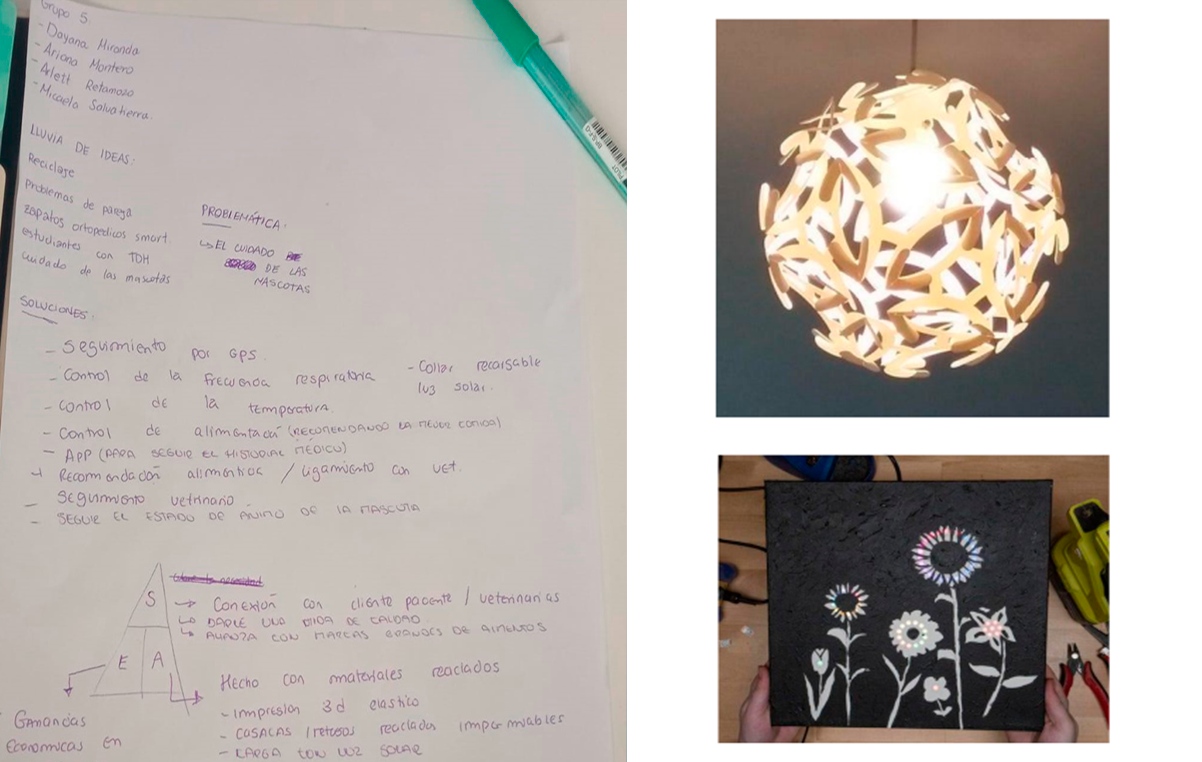 Grupo 5.
- Dayana Miranda
- Ariana Montero
- Arlett Retamozo
- Micaela Salvatierra.
LLUVIA DE IDEAS:
Reciclaje
Problemas de pareja
zapatos ortopedicos smart
estudiantes con TDH
cuidado de las mascotas
PROBLEMÁTICA:
↳ EL CUIDADO
DE LAS
MASCOTAS
SOLUCIONES:
- Seguimiento por GPS.
- Control de la frecuencia respiratoria
- Collar recargable
luz solar.
- Control de la temperatura.
- Control de alimentación (RECOMENDANDO LA MEJOR COMIDA)
- APP (PARA SEGUIR EL HISTORIAL MÉDICO)
- Recomendación alimenticia / ligamiento con vet.
- Seguimiento veterinario
- SEGUIR EL ESTADO DE ÁNIMO DE LA MASCOTA
S
E A
→ Conexión con cliente paciente / veterinarias
↳ DARLE UNA VIDA DE CALIDAD.
↳ ALIANZA CON MARCAS GRANDES DE ALIMENTOS
Hecho con materiales reciclados
- Impresión 3d elastico
- CASACAS / retasos reciclados impermiables
- CARGA CON LUZ SOLAR
Ganancias
Economicas en
PILOT